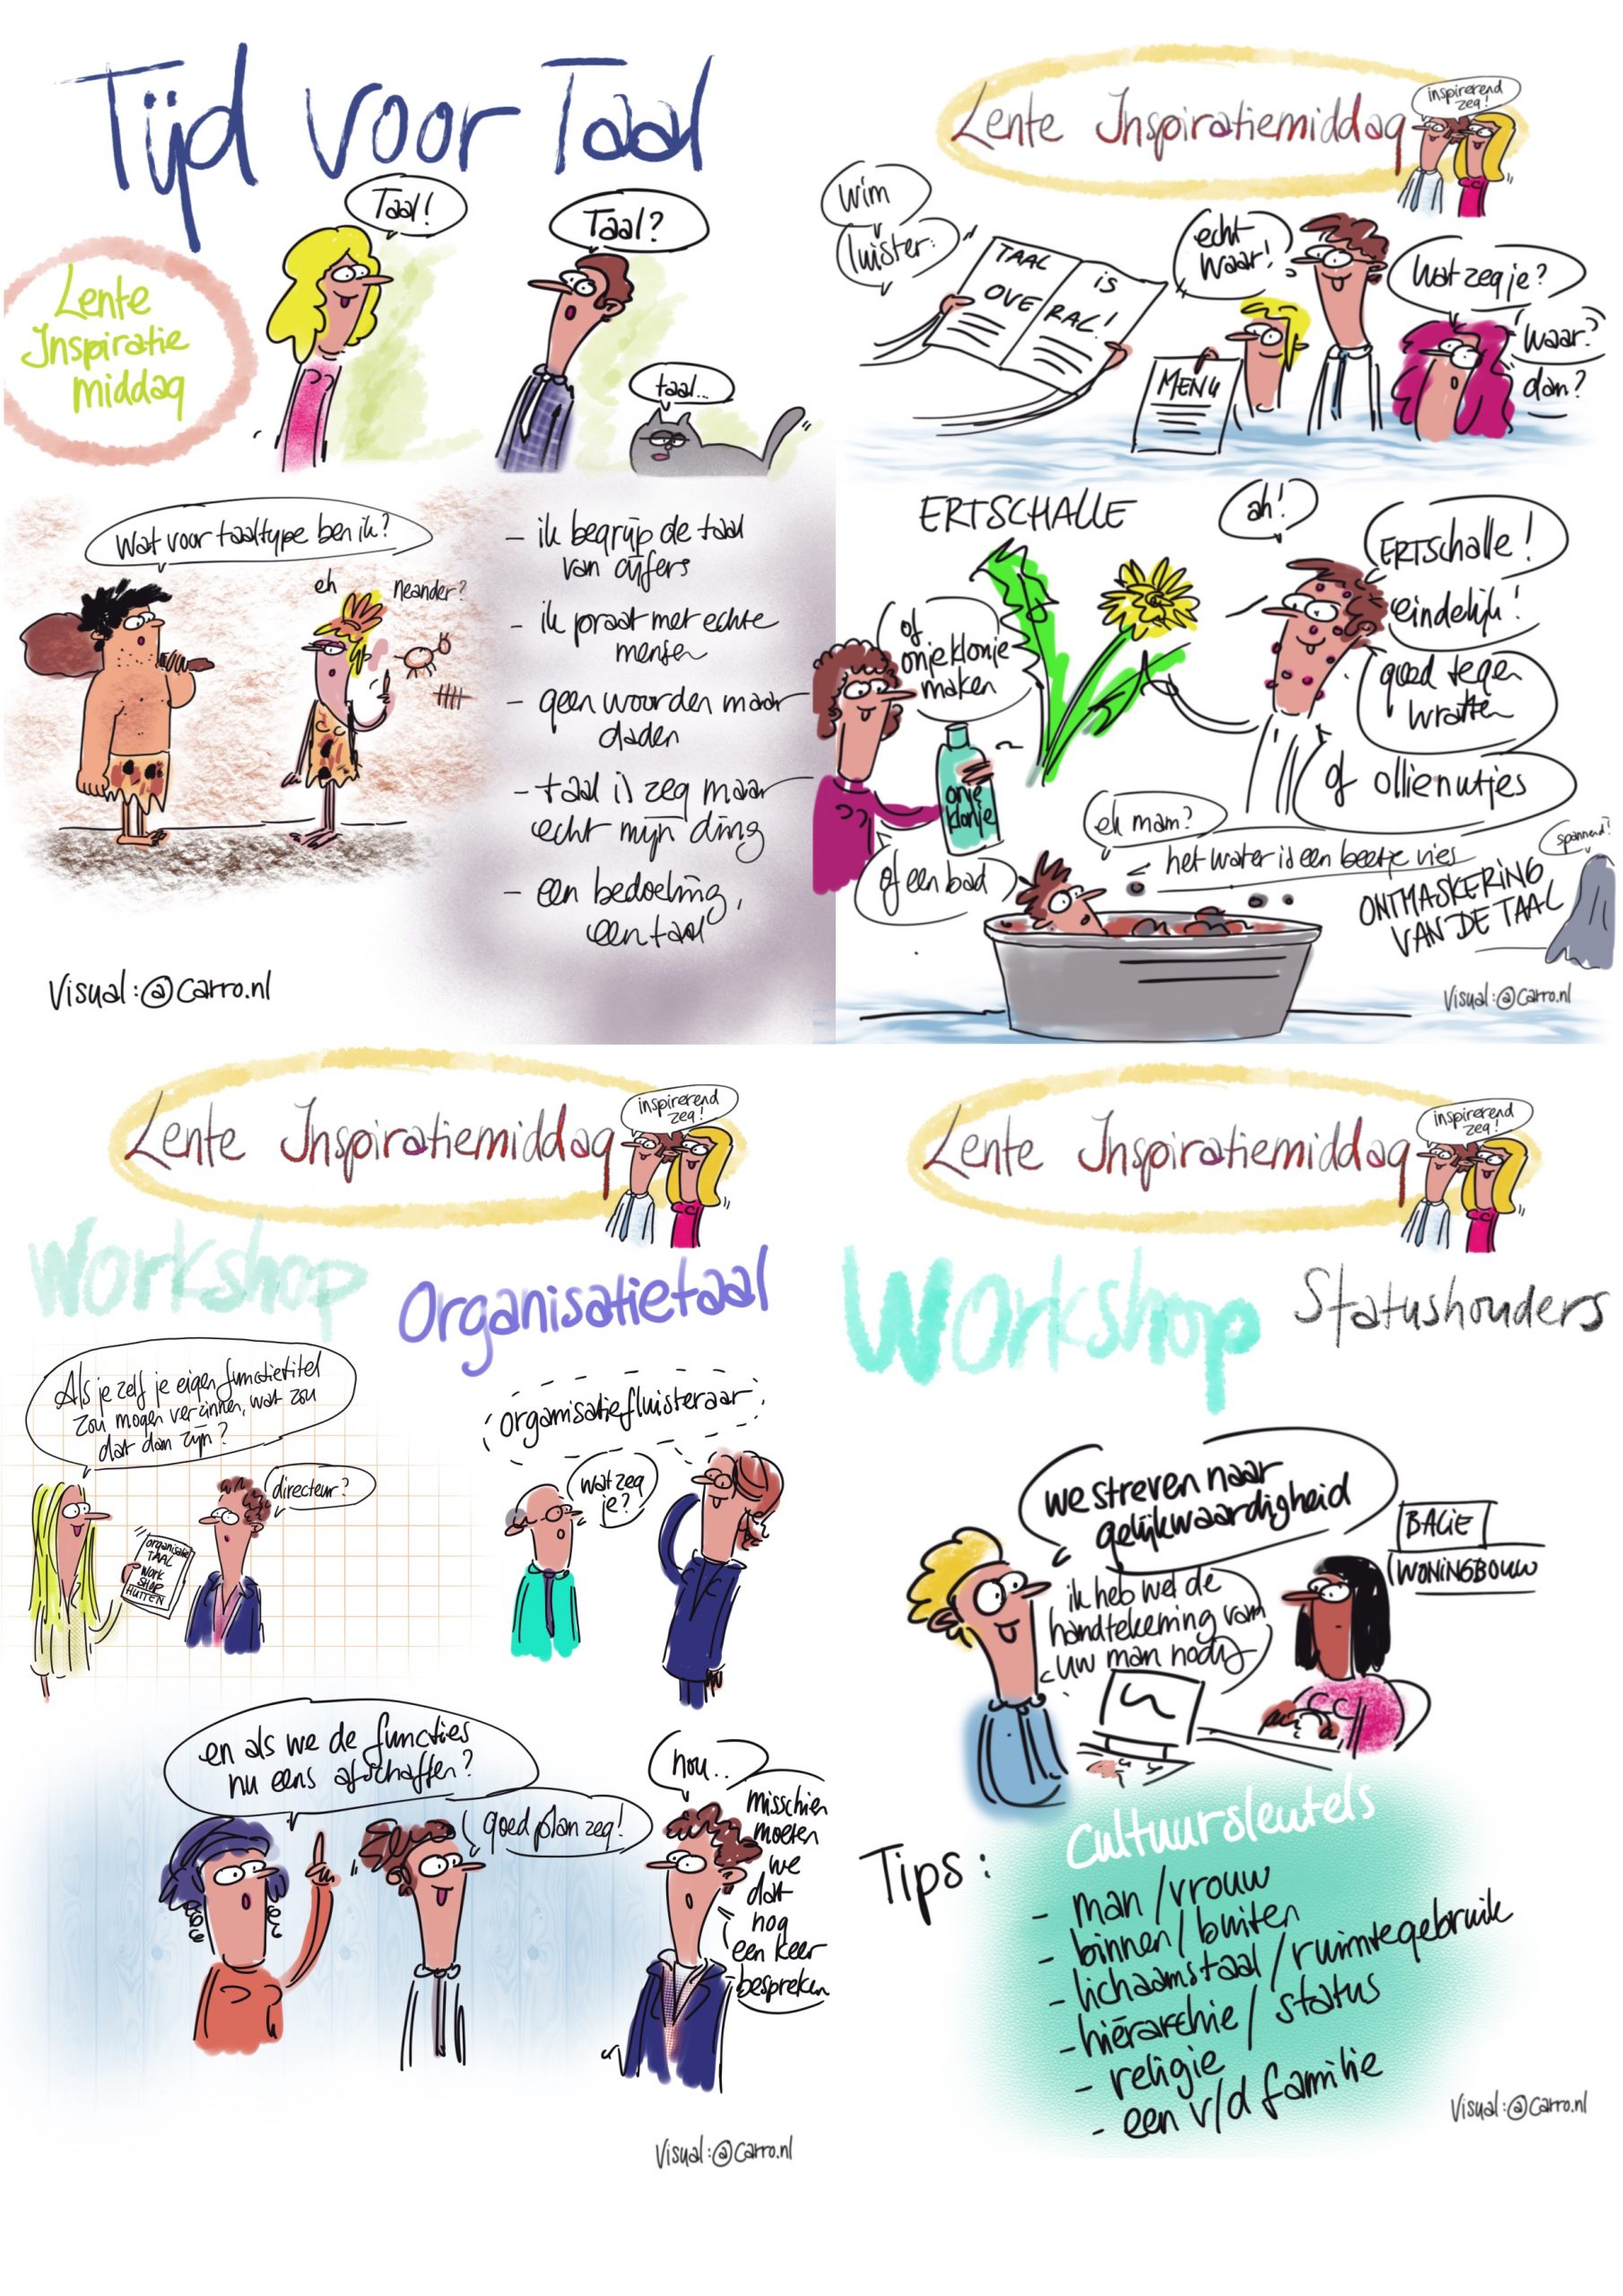 Tijd voor Taal
Taal!
Taal?
taal...
Lente
Inspiratie
middag
Wat voor taaltype ben ik?
eh
Neander?
- ik begrijp de taal
van cijfers
- ik praat met echte
mensen
- geen woorden maar
daden
- taal is zeg maar
echt mijn ding
- een bedoeling,
een taal
Visual:@carro.nl
Lente Inspiratiemiddag
inspirerend
zeg!
Wim
luister:
TAAL IS
OVERAL!
echt
waar!
MENU
Wat zeg je?
waar?
dan?
ERTSCHALLE
ah!
ERTSchalle!
eindelijk!
goed tegen
wratten
of ollienutjes
of
onjeklonje
maken
onje
klonje
of een bad
eh mam?
het water is een beetje vies
spannend!
ONTMASKERING
VAN DE TAAL
Visual:@carro.nl
Lente Inspiratiemiddag
inspirerend
zeg!
Workshop
Organisatietaal
Als je zelf je eigen functietitel
zou mogen verzinnen, wat zou
dat dan zijn?
directeur?
organisatie
TAAL
WORK
SHOP
HUTTEN
organisatiefluisteraar
wat zeg
je?
en als we de functies
nu eens afschaffen?
goed plan zeg!
nou..
misschien
moeten
we
dat
nog
een keer
bespreken
Visual:@carro.nl
Lente Inspiratiemiddag
inspirerend
zeg!
Workshop
Statushouders
we streven naar
gelijkwaardigheid
ik heb wel de
handtekening van
uw man nodig
BALIE
WONINGBOUW
Tips:
Cultuursleutels
- man/vrouw
- binnen/buiten
- lichaamstaal/ruimtegebruik
- hiërarchie/status
- religie
- een v/d familie
Visual:@carro.nl